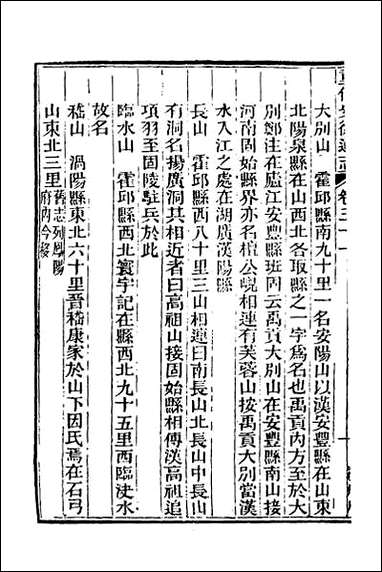 重修安徽通志 卷三十一
大別山　霍邱縣南九十里一名安陽山以漢安豐縣在山東
北陽泉縣在山西北各取縣之一字爲名也禹貢內方至於大
別鄭注在廬江安豐縣班固云禹貢大別山在安豐縣南山接
河南固始縣界亦名棺公峴相連有芙蓉山按禹貢大別當漢
水入江之處在湖廣漢陽縣
長山　霍邱縣西八十里三山相連曰南長山北長山中長山
有洞名揚廣洞其相近者曰高祖山接固始縣相傳漢高祖追
項羽至固陵駐兵於此
臨水山　霍邱縣西北寰宇記在縣西北九十五里西臨決水
故名
嵇山　渦陽縣東北六十里晉嵇康家於山下因氏焉在石弓
山東北三里舊志列鳳陽府內今移